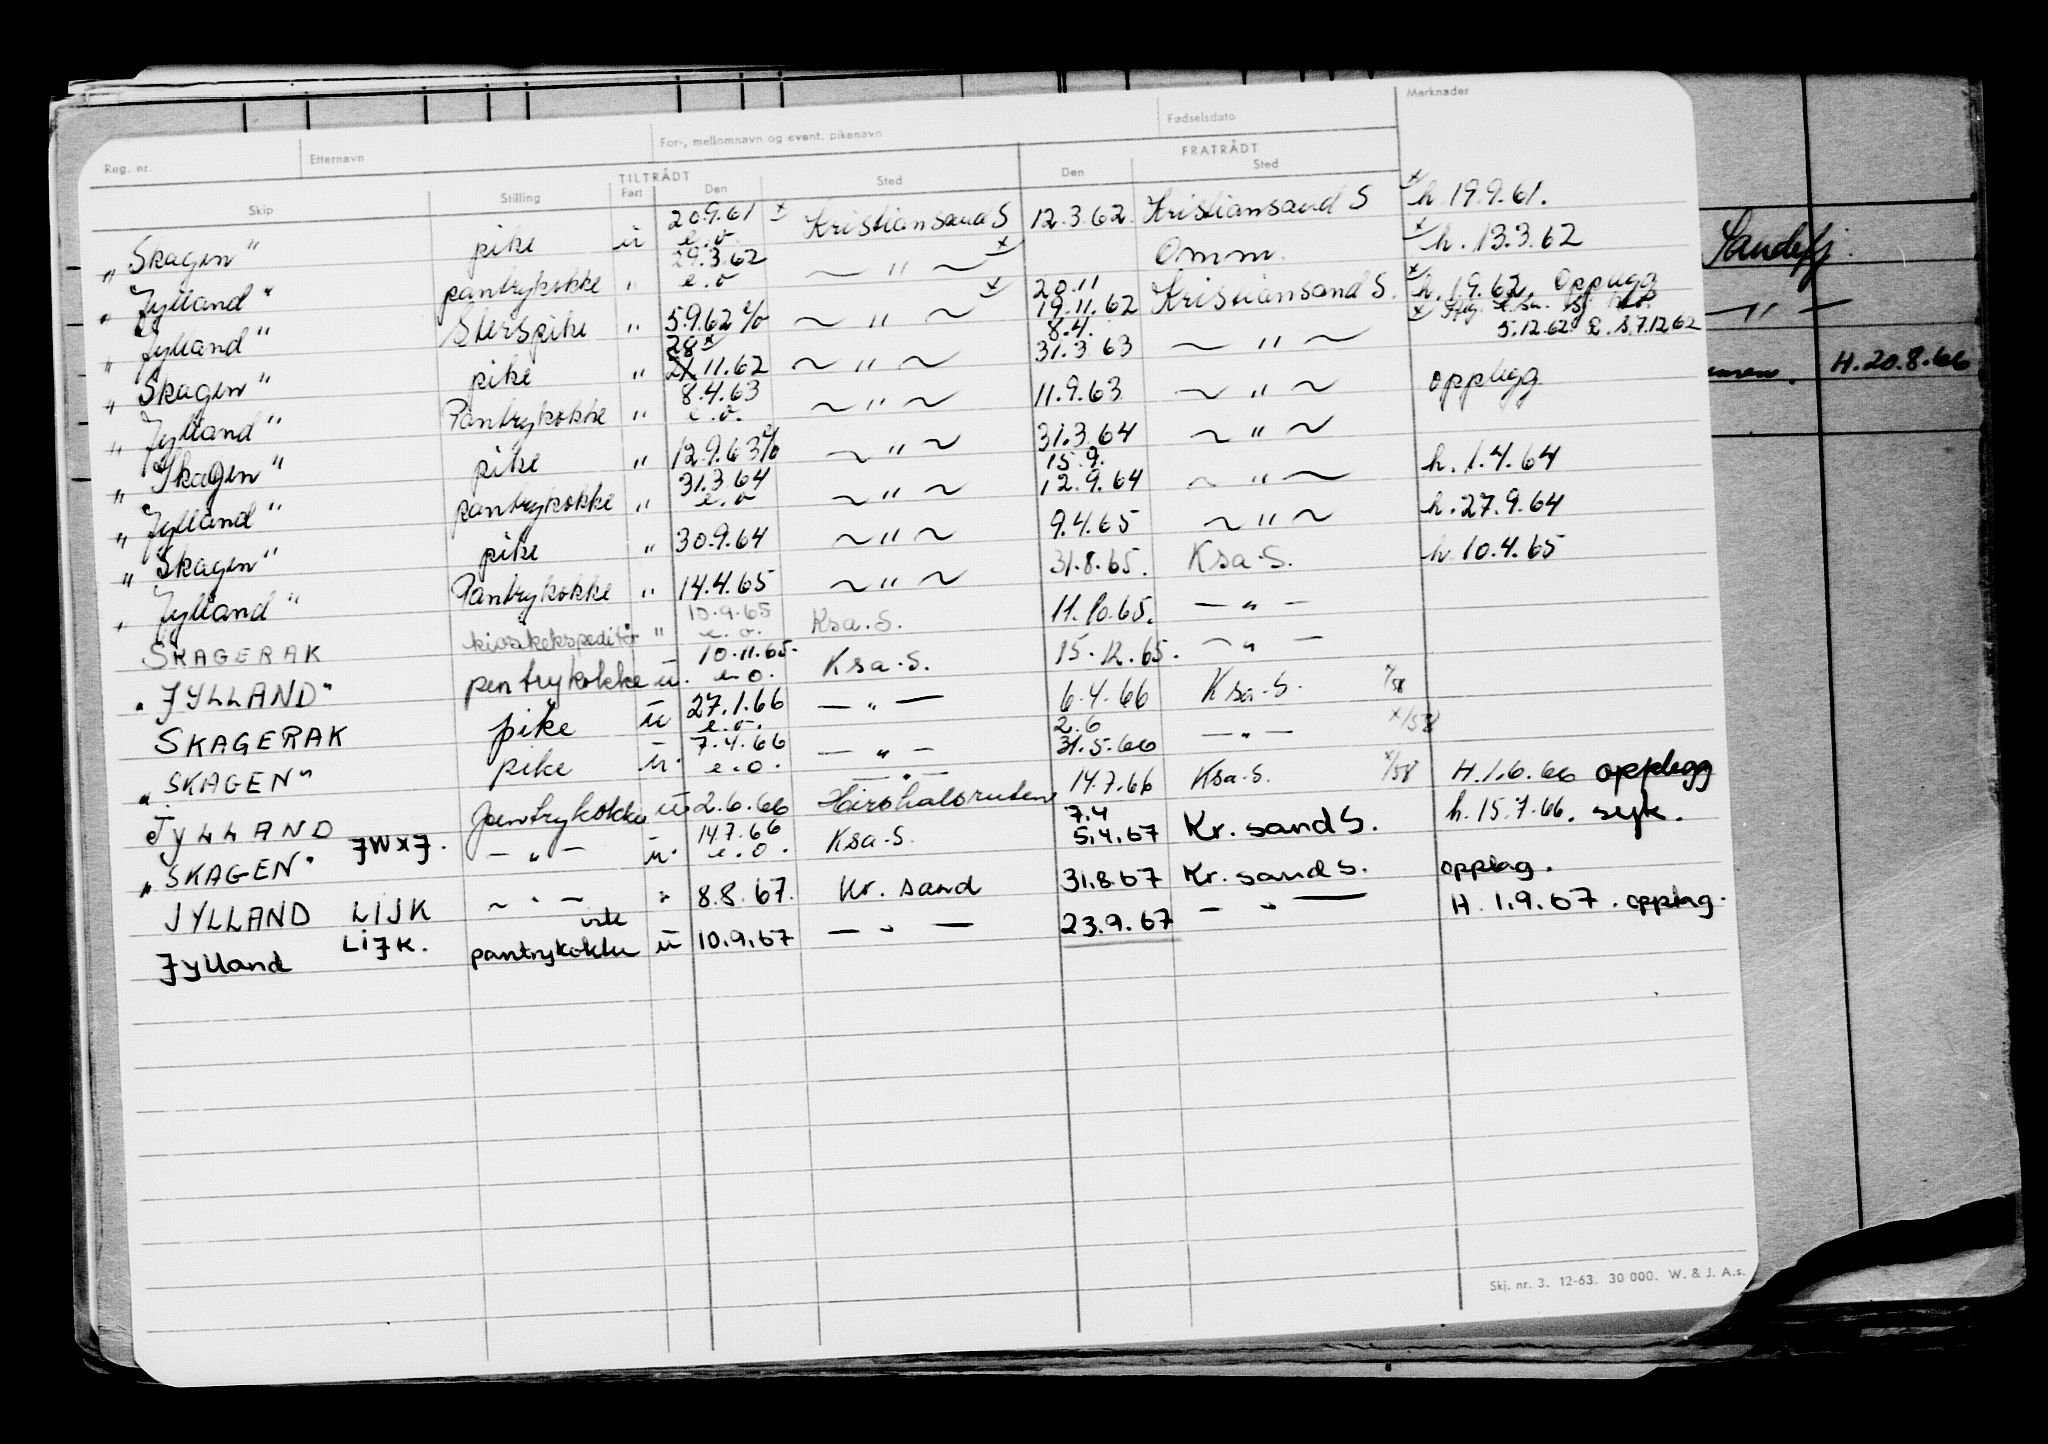 Reg. nr. Etternavn For-, mellomnavn og event. pikenavn Fødselsdato Merknader
TILTRÅDT FRATRÅDT
Skip Stilling Fart Den Sted Den Sted
"Skagen" pike u 20.9.61 e.o. x Kristiansand S 12.3.62 Kristiansand S x h 19.9.61.
"Jylland" pantrykokke " 29.3.62 e.o ~ " ~ x Omm. x h. 13.3.62
"Jylland" Sterspike " 5.9.62 e/o ~ " ~ x 20.11 19.11.62 Kristiansand S. x h. 1.9.62. Opplegg
"Skagen" pike " 28 x 21 11.62 ~ " ~ 8.4. 31.3 63 ~ " ~ x 5.12.62 7.12.62
"Jylland" Pantrykokke " 8.4.63 e.o. ~ " ~ 11.9.63 ~ " ~ opplegg
"Skagen" pike " 12.9.63 e/o ~ " ~ 31.3.64 ~ " ~
"Jylland" pantrykokke " 31.3.64 e.o ~ " ~ 15.9. 12.9.64 ~ " ~ h. 1.4.64
"Skagen" pike " 30.9.64 ~ " ~ 9.4.65 ~ " ~ h. 27.9.64
"Jylland" Pantrykokke " 14.4.65 ~ " ~ 31.8.65. Ksa.S. h. 10.4.65
SKAGERAK kioskekspeditør " 10.9.65 e.o. Ksa.S. 11.10.65. — " —
"JYLLAND" pentrykokke u. 10.11.65. e.o. Ksa.S. 15.12.65. — " —
SKAGERAK pike u 27.1.66 e.o. — " — 6.4.66 Ksa.S. x/58
"SKAGEN" pike u. 7.4.66 e.o. — " — 2.6 31.5.66 — " — x/58
JYLLAND pentrykokke u 2.6.66 Hirshalsruten 14.7.66 Ksa.S. x/58 H.1.6.66 opplegg
"SKAGEN" JWXJ. — " — u. 14.7.66 e.o. Ksa.S. 7.4 5.4.67 Kr.sand S. h. 15.7.66. syk.
JYLLAND LIJK ~ " — " 8.8.67. Kr. sand 31.8.67 Kr. sand S. opplag.
Jylland LIJK. pantrykokke u 10.9.67 — " — 23.9.67 — " — H. 1.9.67. opplag.
Skj. nr. 3. 12-63. 30 000. W. & J. A.s.
Sandefj.
— " —
H. 20.8.66